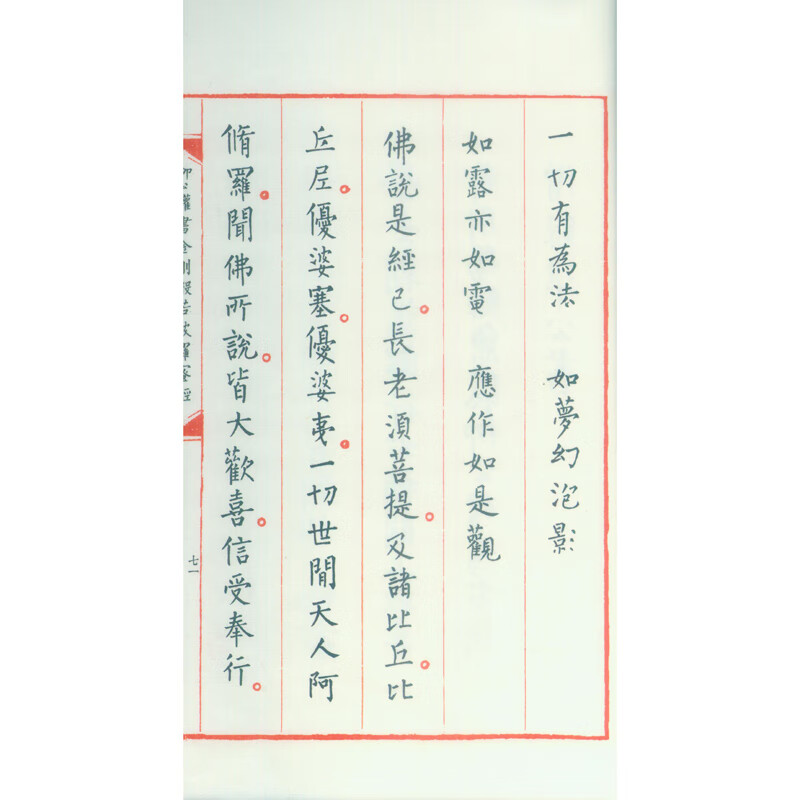 一切有為法　如夢幻泡影
如露亦如電　應作如是觀
佛說是經已。長老須菩提。及諸比丘。比
丘尼。優婆塞。優婆夷。一切世間天人阿
脩羅。聞佛所說。皆大歡喜。信受奉行。
書金剛般若波羅蜜經
七一